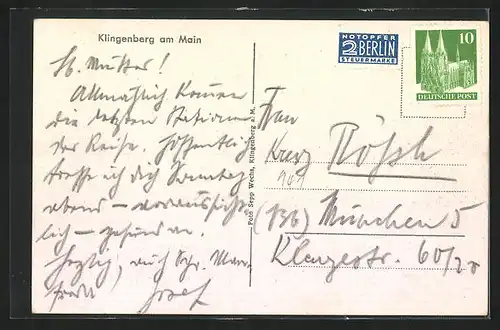 Klingenberg am Main
NOTOPFER
2 BERLIN
STEUERMARKE
10
DEUTSCHE POST
Lb. Mutter!
Allmählich kommen
die letzten Stationen
der Reise. Hoffentlich
treffe ich dich Sonntag
abend – voraussicht-
lich – gesund an.
Herzlig, auch
Josef
Foto Sepp Wecht, Klingenberg a. M.
Frau
(13b) München 5
Klenzestr. 60/